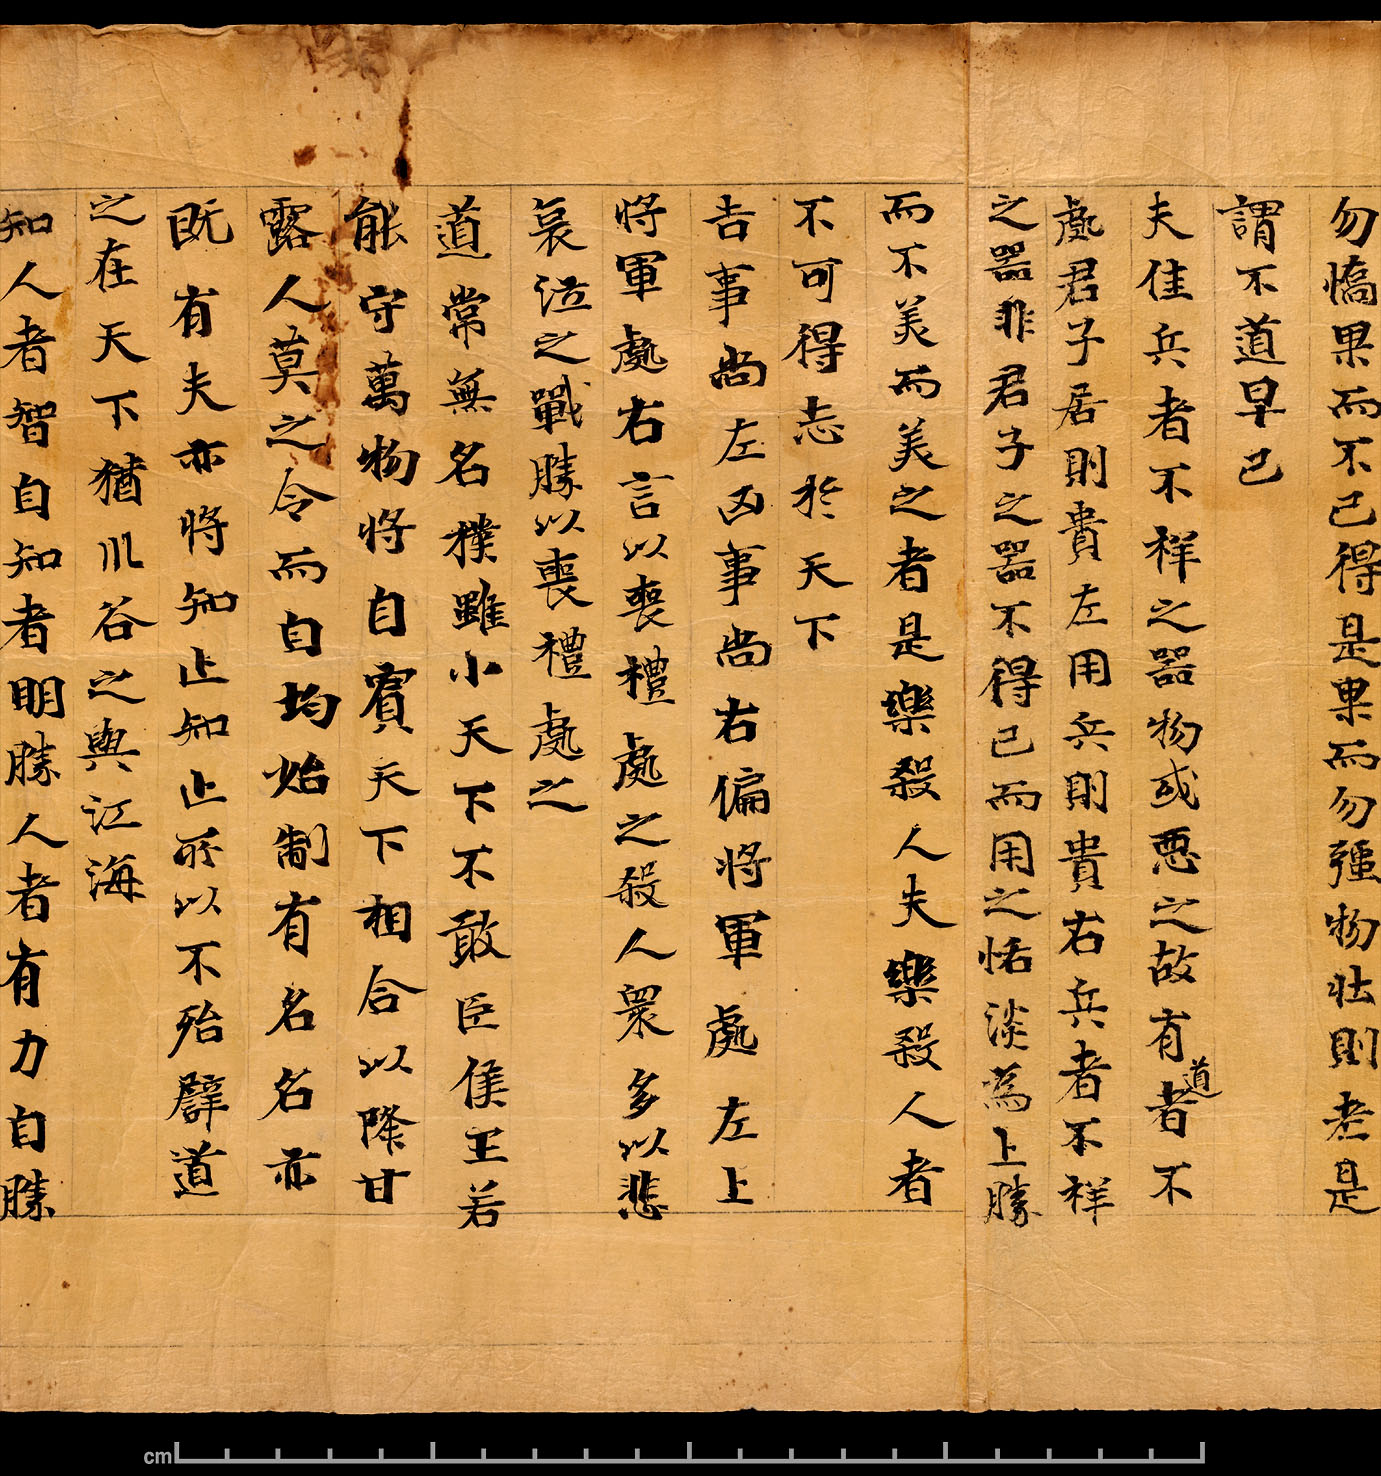 勿憍果而不已得是果而勿强物壯則老是
謂不道早已
夫佳兵者不祥之器物或惡之故有道者不
處君子居則貴左用兵則貴右兵者不祥
之器非君子之器不得已而用之恬淡為上勝
而不美而美之者是樂殺人夫樂殺人者
不可得志於天下
吉事尚左凶事尚右偏將軍處左上
將軍處右言以喪禮處之殺人衆多以悲
哀泣之戰勝以喪禮處之
道常無名樸雖小天下不敢臣侯王若
能守萬物將自賓天下相合以降甘
露人莫之令而自均始制有名名亦
既有夫亦將知止知止所以不殆譬道
之在天下猶川谷之與江海
知人者智自知者明勝人者有力自勝
cm